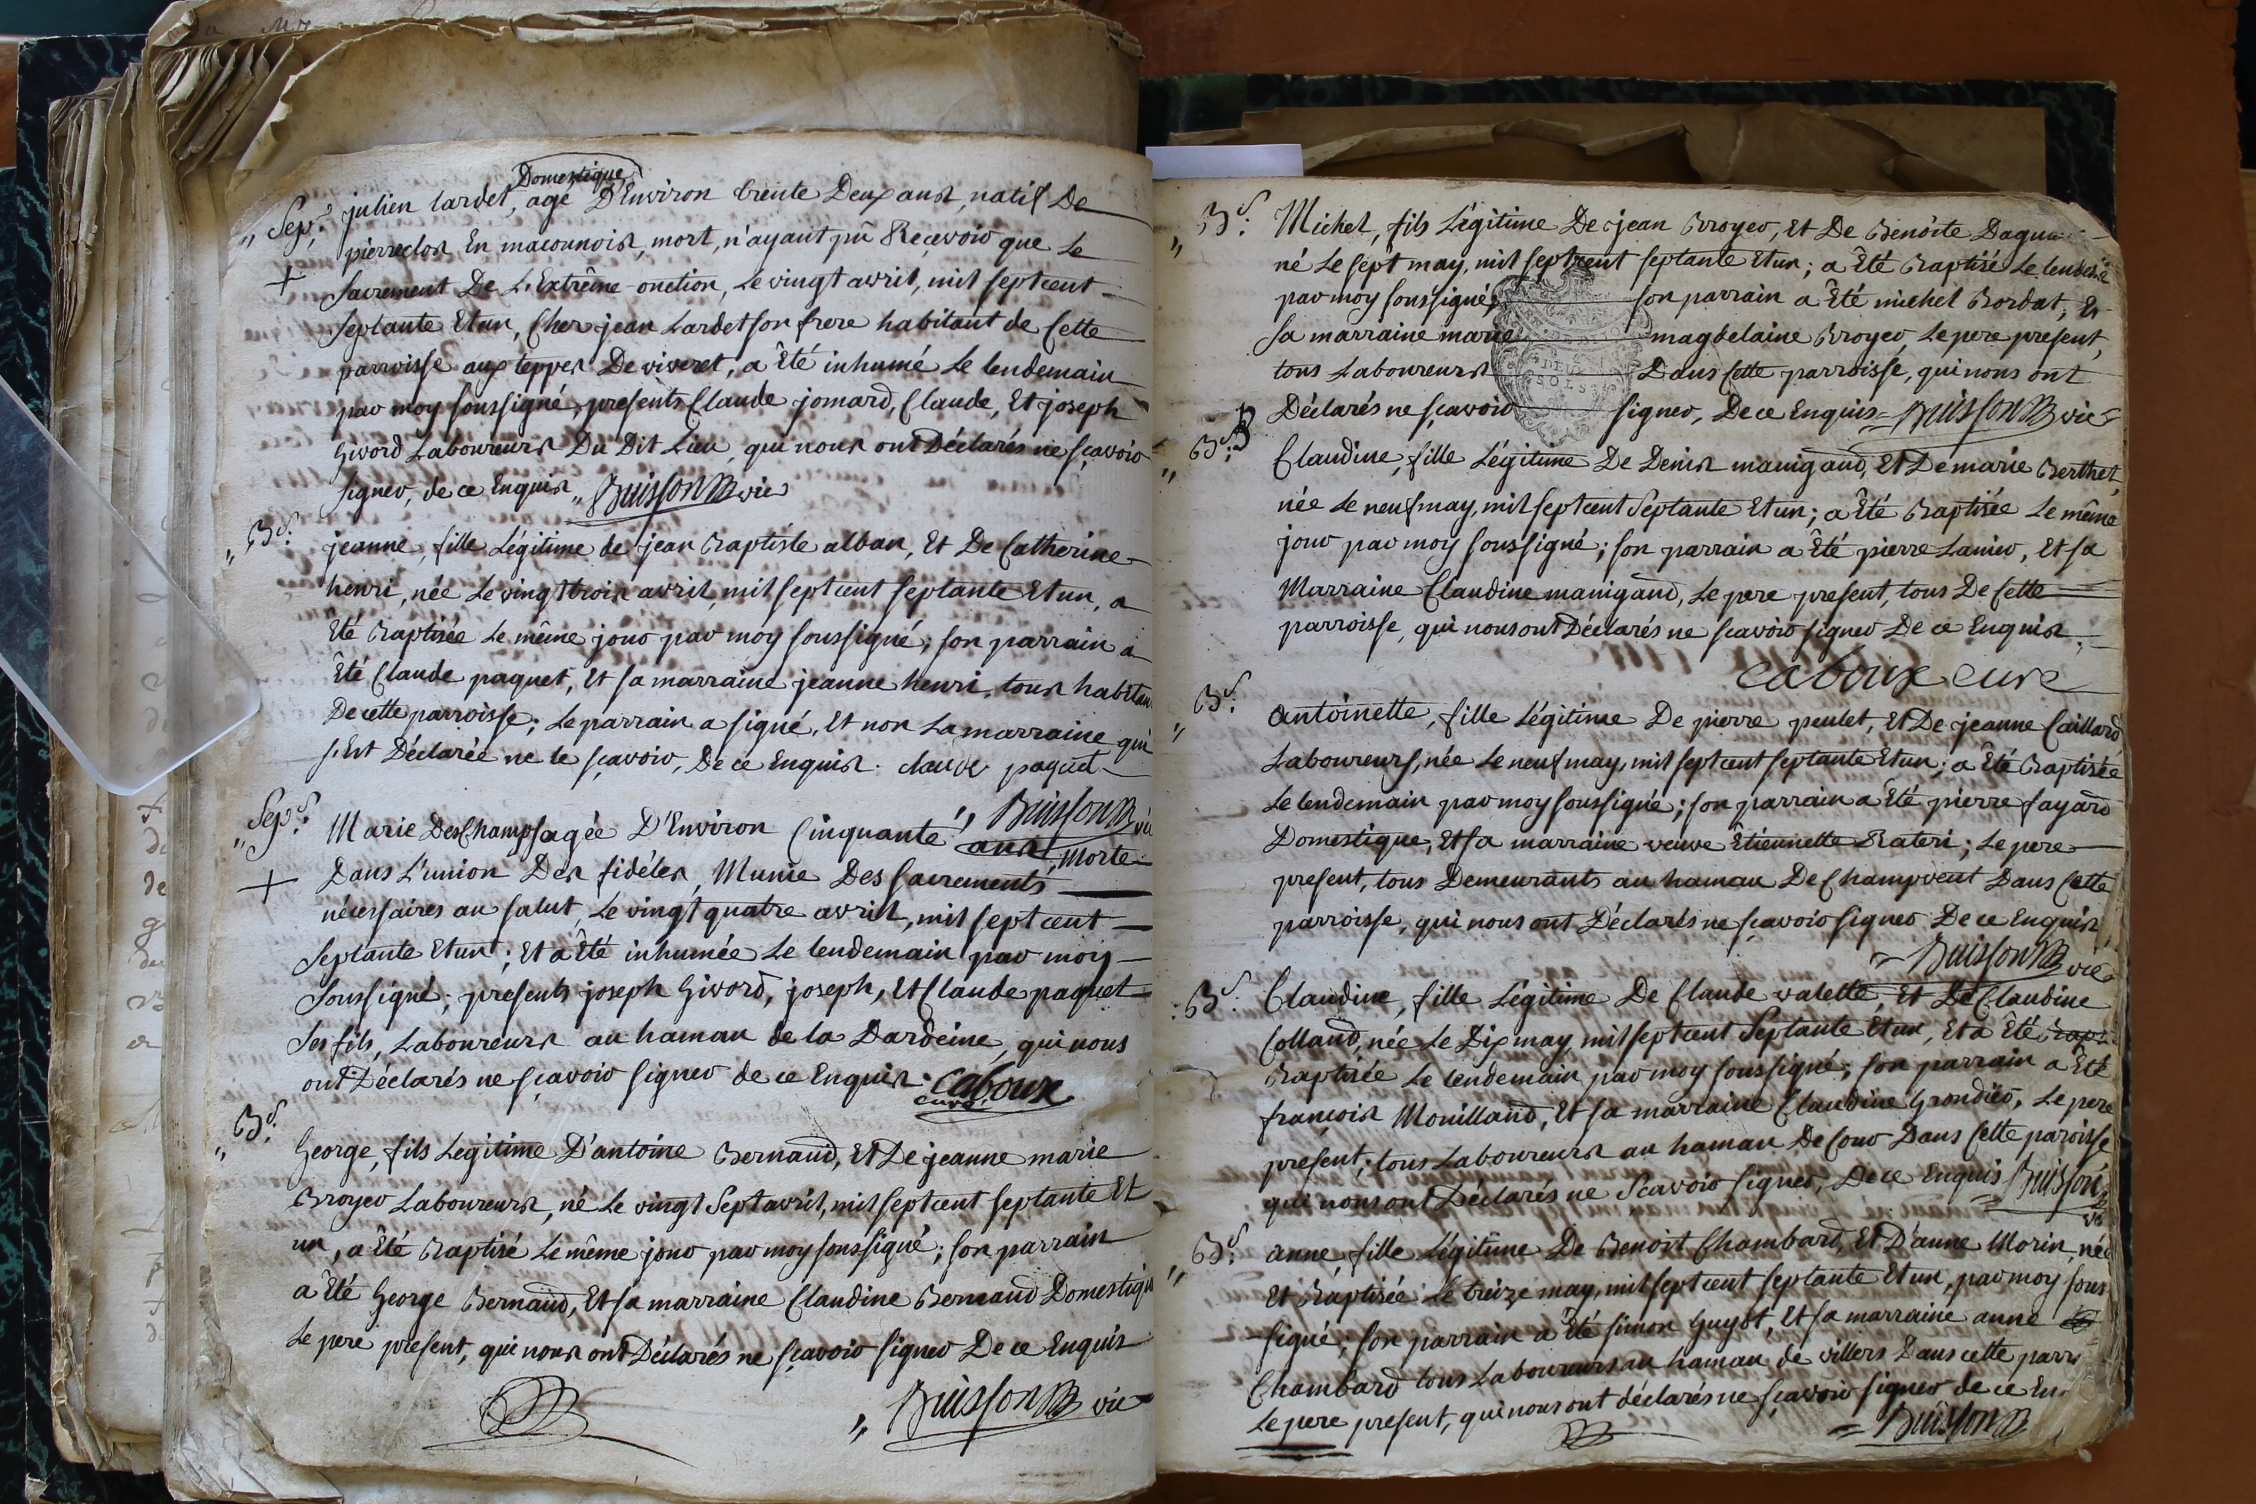 Domestique
Sep.re julien Lardet, agé D'Environ trente Deux ans, natif De
pierreclos En maconnois, mort, n'ayant pû Recevoir que Le
+ Sacrement De L'Extrême-onction, Le vingt avril, mil sept cent
Septante Et un, Chez jean Lardet son frere habitant de Cette
parroisse aux teppes De viveret, a Êté inhumé Le lendemain
par moy soussigné, presents Claude jomard, Claude, Et joseph
Givord Laboureurs Du Dit Lieu, qui nous ont Déclarés ne sçavoir
signer, de ce Enquis Buisson vic
B.s jeanne, fille Légitime de jean Baptiste alban, Et De Catherine
henri, née Le vingt trois avril, mil sept cent septante Et un, a
Eté Baptisée Le même jour par moy soussigné; son parrain a
Êté Claude paquet, Et sa marraine jeanne henri, tous habitan
De cette parroisse; Le parrain a signé, Et non La marraine qui
s'Est Déclarée ne le sçavoir, De ce Enquis. claude paquet
Buisson vic
Sep.re Marie DesChamps agée D'Environ Cinquante ans, Morte
+ Dans L'union Des fidéles, Munie Des Sacrements
nécessaires au salut, Le vingt quatre avril, mil sept cent
Septante Et un; Et a Êté inhumée Le lendemain par moy
Soussigné; presents joseph Givord, joseph, Et Claude paquet
Ses fils, Laboureurs au hamau de la Dardeine, qui nous
ont Déclarés ne sçavoir signer de ce Enquis. Caboux
curé
B.s George, fils Legitime D'antoine Bernaud, Et De jeanne marie
Broyer Laboureurs, né Le vingt Sept avril, mil sept cent septante Et
un, a Êté Baptisé Le même jour par moy soussigné; son parrain
a Êté George Bernaud, Et sa marraine Claudine Bernaud Domestique
Le pere present, qui nous ont Déclarés ne sçavoir signer De ce Enquis
Buisson vic
B.s Michel, fils Légitime De jean Broyer, Et De Benoîte
né Le sept may, mil sept cent septante Et un; a Êté Baptisé Le lendemain
par moy soussigné, son parrain a Êté michel Bordat, Et
Sa marraine marie magdelaine Broyer, Le pere present,
tous Laboureurs Dans Cette parroisse, qui nous ont
Déclarés ne sçavoir signer, De ce Enquis Buisson vic
B.s Claudine, fille Légitime De Denis manigaud, Et De marie Berthet,
née Le neuf may, mil sept cent Septante Et un; a Êté Baptisée Le même
jour par moy soussigné; son parrain a Êté pierre Lanier, Et sa
Marraine Claudine manigaud, Le pere present, tous De Cette
parroisse, qui nous ont Déclarés ne sçavoir signer De ce Enquis.
Caboux curé
B.s antoinette, fille Légitime De pierre peulet, Et De jeanne Caillard
Laboureurs, née Le neuf may, mil sept cent septante Et un; a Êté Baptisée
Le lendemain par moy soussigné; son parrain a Êté pierre fayard
Domestique, Et sa marraine veuve Êtiennette Rateri; Le pere
present, tous Demeurants au hamau De Champvent Dans Cette
parroisse, qui nous ont Déclarés ne sçavoir signer De ce Enquis
Buisson vic
B.s Claudine, fille Légitime De Claude valette, Et De Claudine
Colland, née Le Dix may, mil sept cent Septante Et un, Et a Êté
Baptisée Le lendemain par moy soussigné; son parrain a Êté
françois Mouilland, Et sa marraine Claudine Grondier, Le pere
present; tous Laboureurs au hamau De Cour Dans Cette paroisse
qui nous ont Déclarés ne Scavoir signer, De ce Enquis Buisson
B.s anne, fille Légitime De Benoît Chambard, Et D'anne Morin, née
Et Baptisée Le treize may, mil sept cent septante Et un, par moy sous
signé; son parrain a Êté simon Guyot, Et sa marraine anne
Chambard tous Laboureurs au hamau de villers Dans cette parr
Le pere present, qui nous ont déclarés ne sçavoir signer de ce En
Buisson